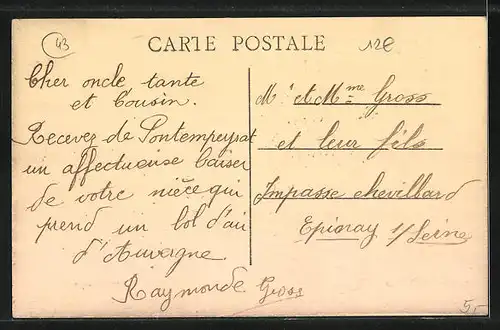 43
CARTE POSTALE
12€
Cher oncle tante
et Cousin.
Recevez de Pontempeyrat
un affectueux baiser
de votre nièce qui
prend un bol d'air
d'Auvergne
Raymonde Gross
Mr et Mme Gross
et leur fils
Impasse chevillard
Epinay s/ Seine
5,-